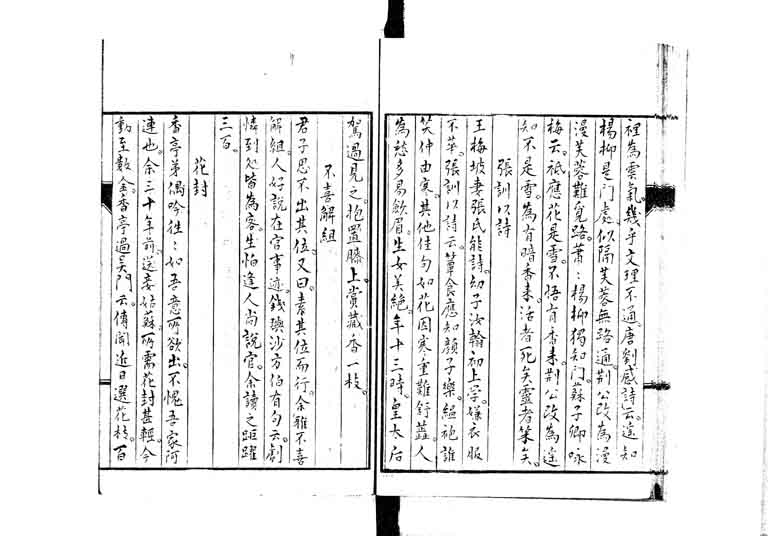 裡為雲氣。幾乎文理不通。唐劉感詩云。遥知
楊柳是門處。似隔芙蓉無路通。荆公改為漫
漫芙蓉難覓路。蕭〻楊柳獨知門。蘇子卿咏
梅云。祗應花是雪。不悟有香来。荆公改為遥
知不是雪。為有暗香来。活者死矣。靈者笨矣。
張訓以詩
王梅坡妻張氏能詩。幼子汝翰初上学。嫌衣服
不華。張訓以詩云。簞食應知顔子樂。緼袍誰
笑仲由寒。其他佳句如花因寒重難舒蕊。人
為愁多易歛眉。生女美絶。年十三時。皇太后
駕過見之。抱置膝上。賞藏香一枝。
不喜解組
君子思不出其位。又曰。素其位而行。余雅不喜
解組人好說在官事迹。錢璵沙方伯有句云。劇
憐到処皆為客。生怕逢人尚說官。余讀之距躍
三百。
花封
香亭弟偶吟徃〻如吾意所欲出。不愧吾家阿
連也。余三十年前。送妾姑蘇。所需花封甚輕。今
動至數金。香亭過吴門云。傳聞近日選花枝。百